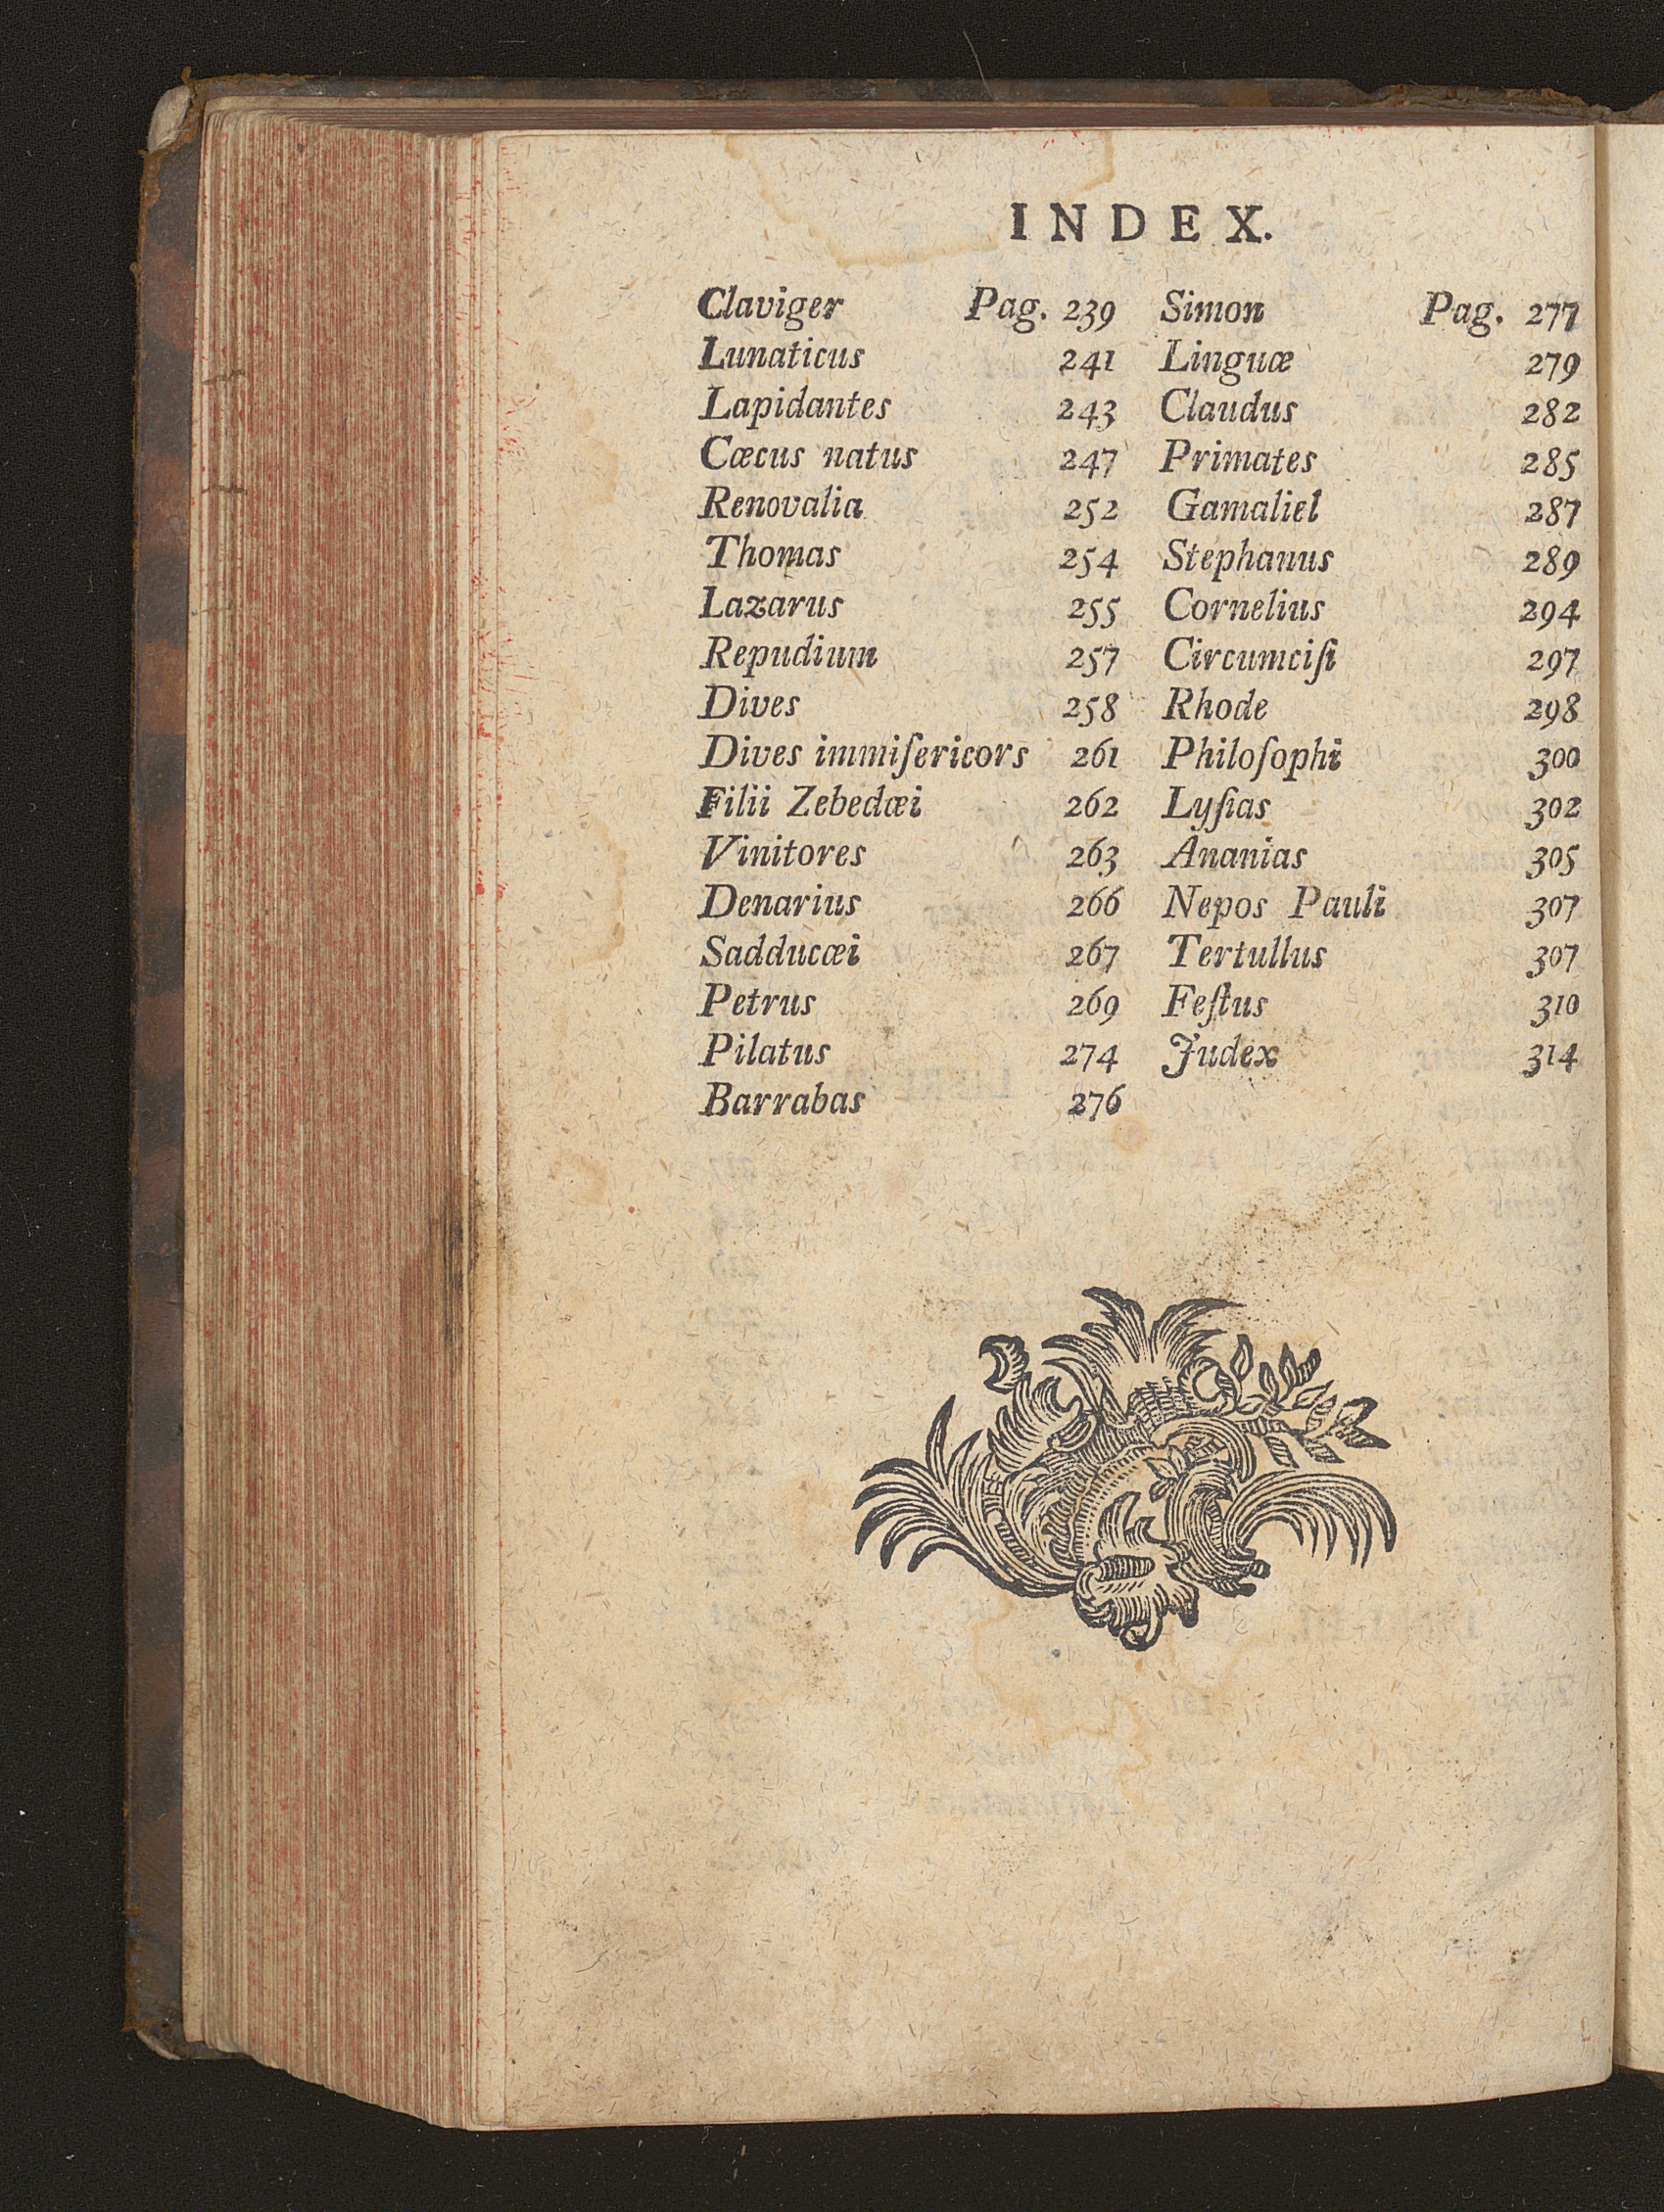 INDEX.
Claviger Pag. 239
Lunaticus 241
Lapidantes 243
Cæcus natus 247
Renovalia 252
Thomas 254
Lazarus 255
Repudium 257
Dives 258
Dives immiſericors 261
Filii Zebedæi 262
Vinitores 263
Denarius 266
Sadducæi 267
Petrus 269
Pilatus 274
Barrabas 276
Simon Pag. 277
Linguæ 279
Claudus 282
Primates 285
Gamaliel 287
Stephanus 289
Cornelius 294
Circumciſi 297
Rhode 298
Philoſophi 300
Lyſias 302
Ananias 305
Nepos Pauli 307
Tertullus 307
Feſtus 310
Judex 314